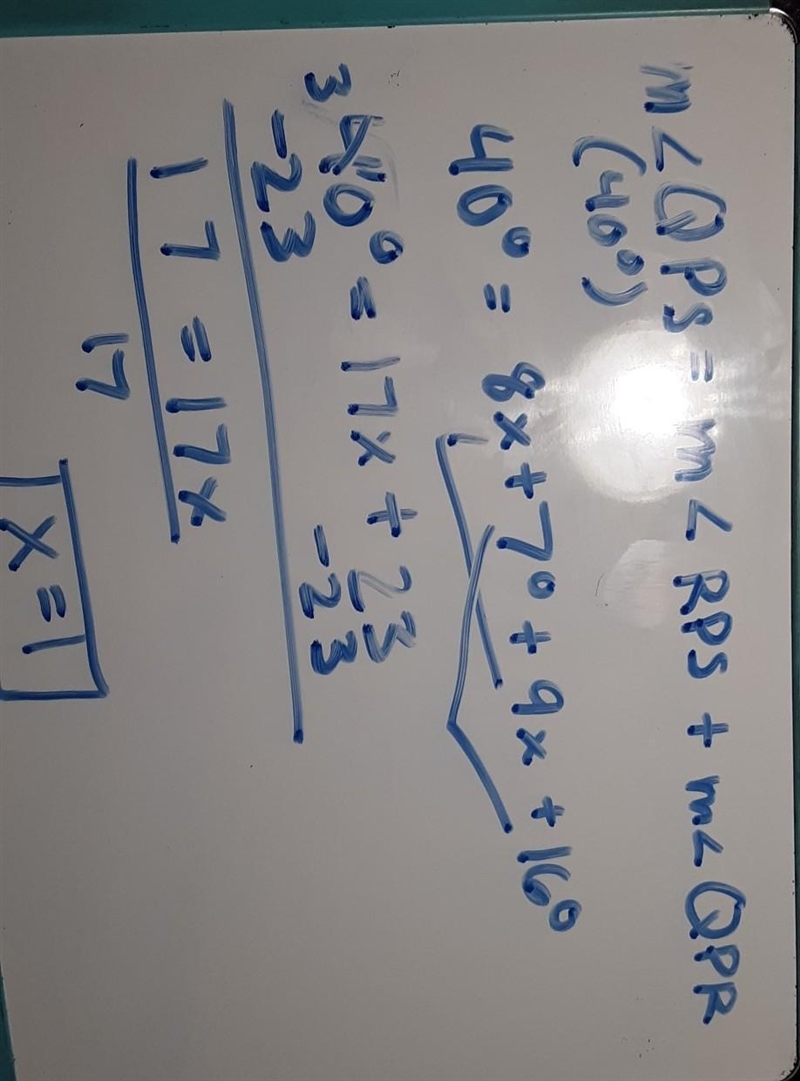 m<QPS = m<RPS + m<QPR
(40°)
40° = 8x+7° + 9x + 16°
3
40° = 17x + 23
-23 -23
17 = 17x
17
x = 1